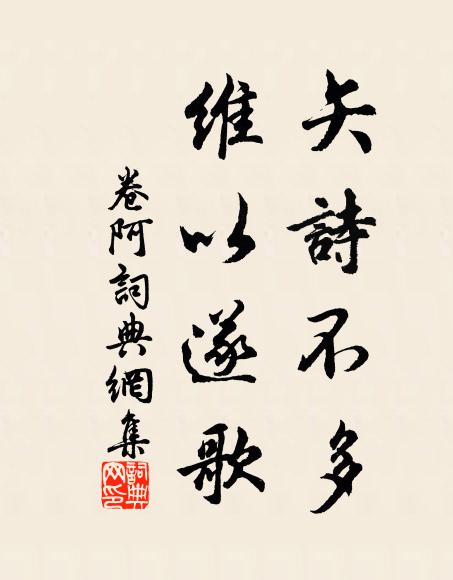 矢詩不多
維以遂歌
卷阿詞典網集
詞典網印